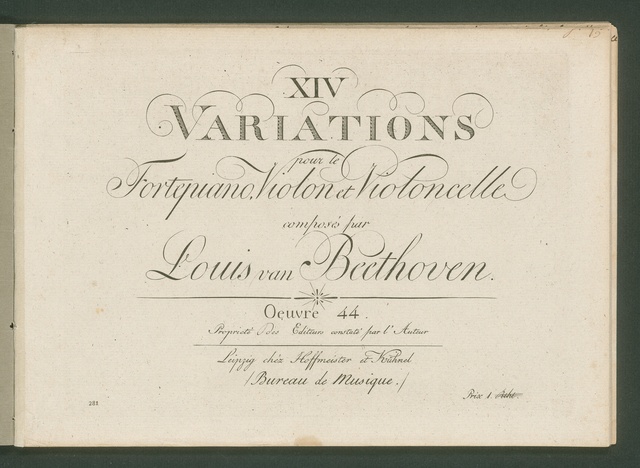 XIV
VARIATIONS
pour le
Fortepiano, Violon et Violoncelle
composés par
Louis van Beethoven.
Oeuvre 44.
Propriété des Editeurs constaté par l'Auteur
Leipzig chéz Hoffmeister et Kühnel
/Bureau de Musique./
281
Prix 1